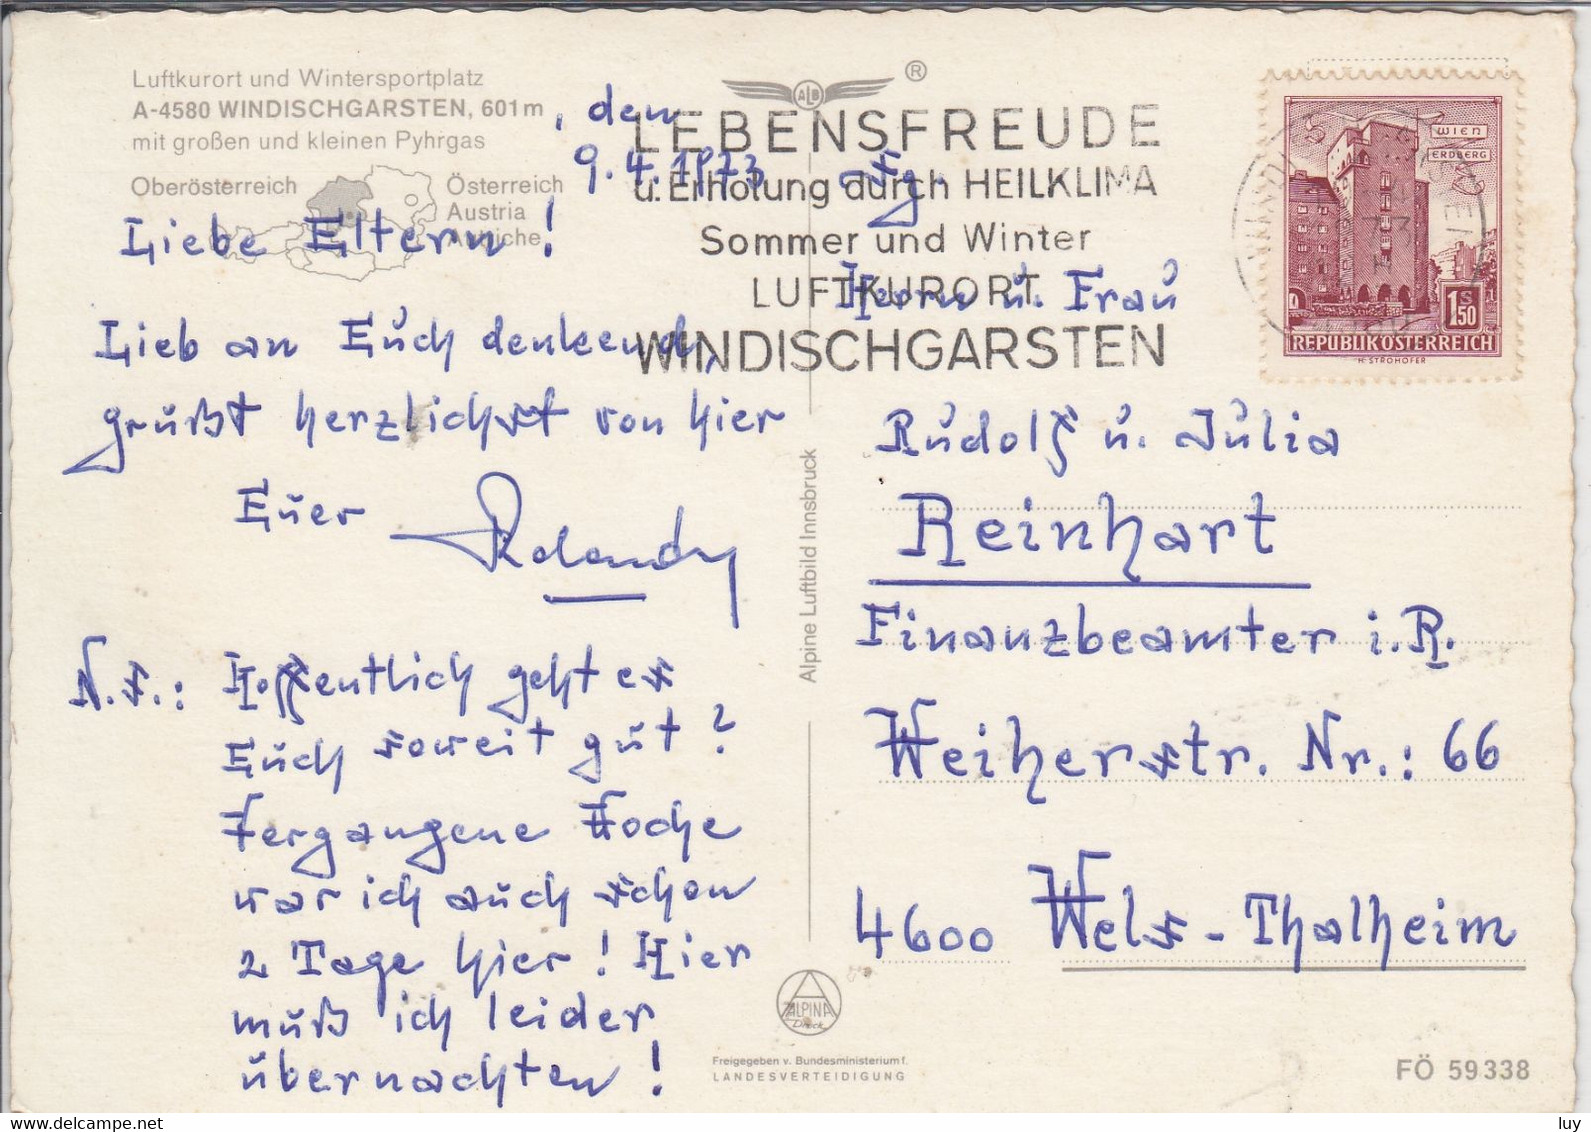 Luftkurort und Wintersportplatz
A-4580 WINDISCHGARSTEN, 601 m
mit großen und kleinen Pyhrgas
Oberösterreich
Österreich
Austria
Autriche
, den
9.4.1973
Liebe Eltern!
Lieb an Euch denkend,
grüßt herzlichst von hier
Euer
N.S.: Hoffentlich geht es
Euch soweit gut?
Vergangene Woche
war ich auch schon
2 Tage hier! Hier
muß ich leider
übernachten!
ALB ®
LEBENSFREUDE
u. Erholung durch HEILKLIMA
Sommer und Winter
LUFTKURORT
WINDISCHGARSTEN
Alpine Luftbild Innsbruck
ALPINA
Druck
Freigegeben v. Bundesministerium f.
LANDESVERTEIDIGUNG
WIEN
ERDBERG
S
1.50
REPUBLIK ÖSTERREICH
H. STROHOFER
Fg.
Herrn u. Frau
Rudolf u. Julia
Reinhart
Finanzbeamter i.R.
Weiherstr. Nr.: 66
4600 Wels-Thalheim
FÖ 59 338
www.delcampe.net
luy